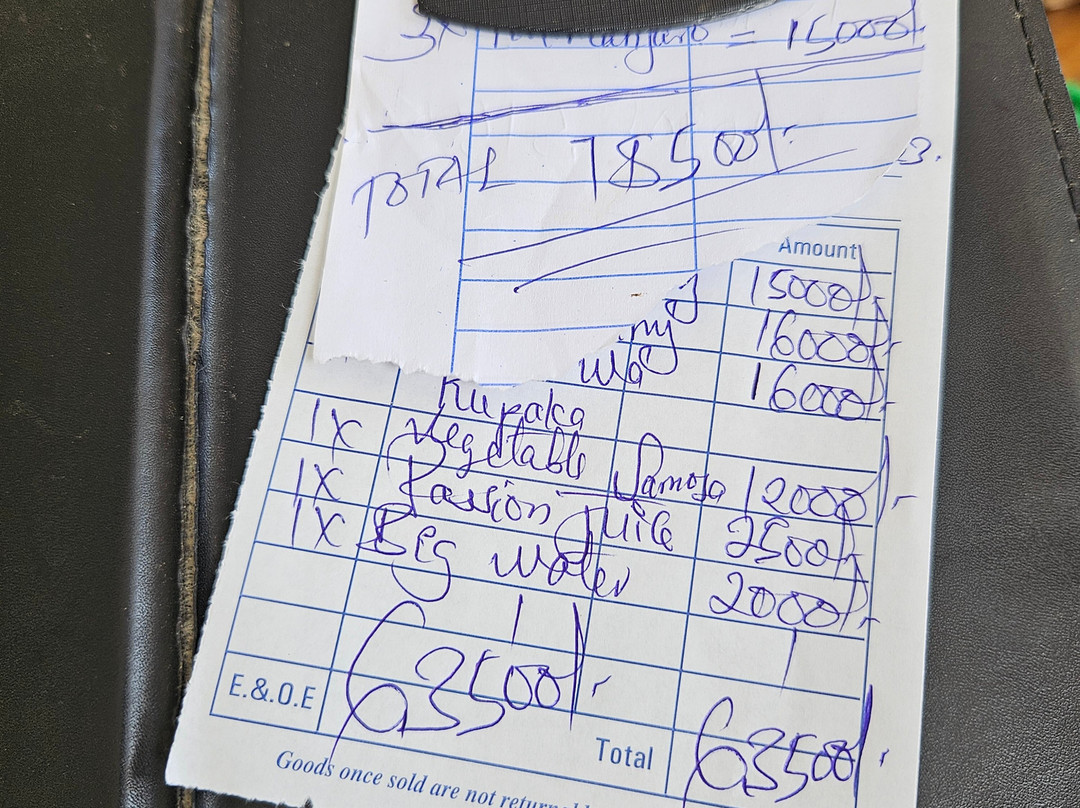 3x Kilimanjaro = 15000/-
TOTAL 78500/-
Amount
15000/-
16000/-
16000/-
Kupaka
1X Vegetable Samosa 12000/-
1X Passion Juice 2500/-
1X Big Water 2000/-
63500/-
E.&.O.E
Total 63500/-
Goods once sold are not